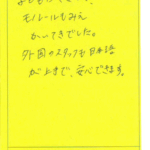 モノレールもみえ
かいてきでした。
外国のスタッフも日本語
が上手で、安心できます。